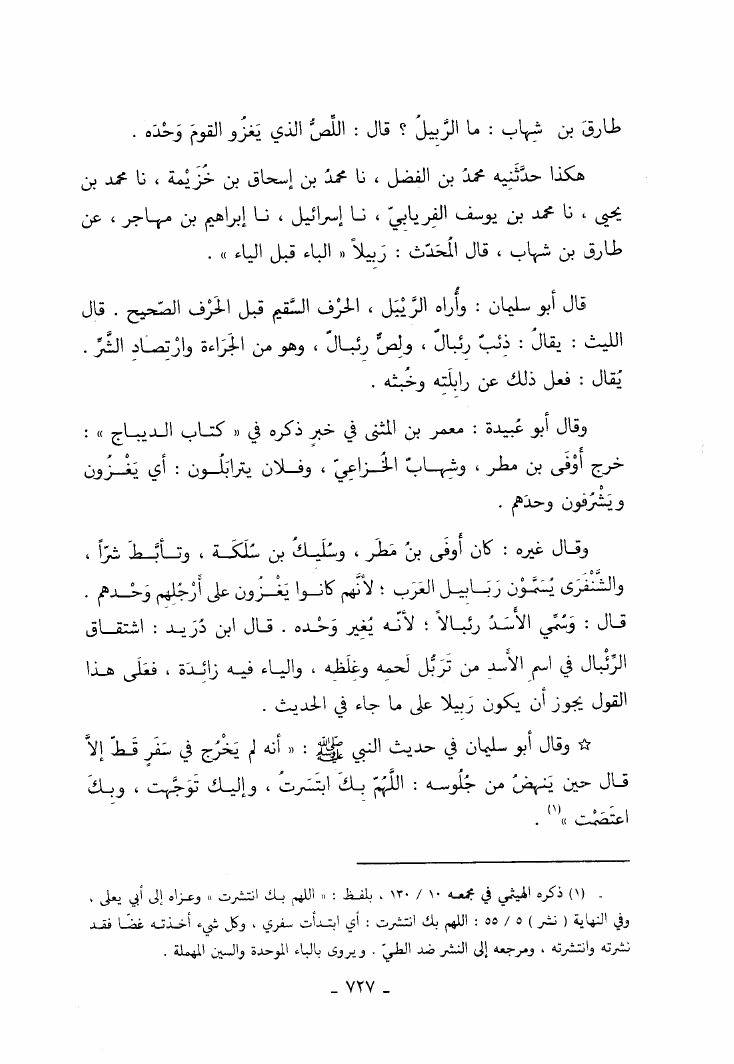 طارقَ بن شِهاب : ما الرَّبِيلُ ؟ قال : اللِّصُّ الذي يَغزُو القومَ وَحْدَه .
هكذا حدَّثَنِيه محمدُ بن الفضل ، نا محمدُ بن إسحاق بن خُزَيْمة ، نا محمد بن
يحيى ، نا محمد بن يوسف الفريابيّ ، نـا إسرائيل ، نـا إبراهيم بن مهاجر ، عن
طارق بن شهاب ، قال المُحَدّث : رَبِيلاً « الباء قبل الياء » .
قال أبو سليمان : وأُراه الرَّيْبَل ، الحَرْف السَّقِيم قبل الحَرْف الصّحيح . قال
الليث : يقالُ : ذئبٌ رئبالٌ ، ولِصٌّ رِئبـالٌ ، وهو من الجَرَاءة وارْتِصـادِ الشَّرِّ .
يُقال : فعل ذلك عن رابلَتِه وخُبثِه .
وقال أبو عُبيدة : معمر بن المثنى في خبرٍ ذكره في « كتـاب الـديبـاج » :
خرج أَوْفَى بن مطر ، وشِهـابٌ الخُـزاعيّ ، وفـلان يترابَلُـون : أي يَغْـزُون
ويَشْرُفون وحدَهم .
وقـال غيره : كان أوفَى بنُ مَطَر ، وسُلَيـكُ بن سُلَكَـة ، وتـأبَّـطَ شرّاً ،
والشَّنْفَرَى يُسَمَّوْن رَبَـابيـل العَرَب ؛ لأنَّهم كانُـوا يَغْـزُون على أَرْجُلِهم وَحْـدهم .
قـال : وَسُمِّي الأسَـدُ رئبـالاً ؛ لأنّـه يُغير وَحْـده . قـال ابن دُرَيـد : اشتقـاق
الرِّئْبال في اسم الأسـد من تَرَبُّل لَحمِه وغِلَظِه ، واليـاء فيـه زائـدَة ، فعَلَى هـذا
القول يجوز أن يكون رَبِيلا على ما جاء في الحديث .
☆ وقال أبو سليمان في حديث النبي ﷺ : « أنه لم يَخْرُج في سَفَرٍ قَـطّ إلاَّ
قـال حين يَنهضُ من جُلُوسـه : اللَّهُمّ بـكَ ابتَسَرتُ ، وإليـك تَوَجَّهت ، وبـكَ
اعتَصَمْت »(١) .
(١) ذكره الهيثمي في مجمعه ١٠ / ١٣٠ ، بلفـظ : « اللهم بـك انتشرت » وعـزاه إلى أبي يعلى ،
وفي النهاية ( نشر ) ٥ / ٥٥ : اللهم بك انتشرت : أي ابتـدأت سفري ، وكل شيء أخـذتـه غضّـا فقـد
نشرته وانتشرته ، ومرجعه إلى النشر ضد الطيّ . ويروى بالباء الموحدة والسين المهملة .
ـ ٧٢٧ ـ